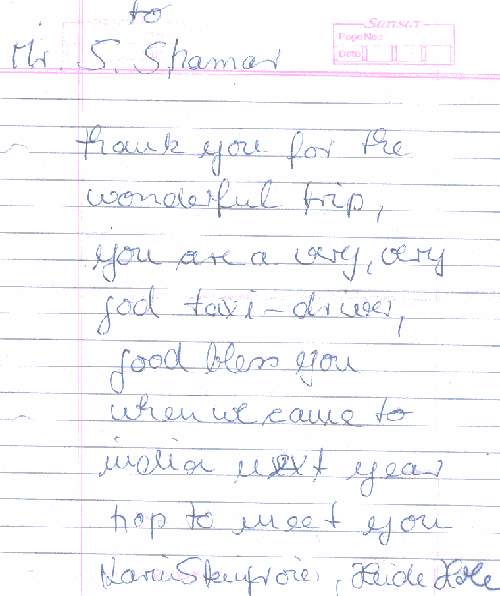 to
Sunsur
Page No.:
Date
Mr. S. Shamar
thank you for the
wonderful trip,
you are a very, very
god taxi-driver,
good bless you
when we came to
india next year
hop to meet you
Karin , Heide